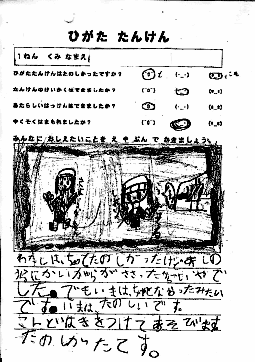 ひがた たんけん
1ねん くみ なまえ
ひがたたんけんはたのしかったですか?
たんけんのけいかくはできましたか?
あたらしいはっけんはできましたか?
やくそくはまもれましたか?
みんなに おしえたいことを え や ぶん で かきましょう。
わたしは、ちょっとたのしかったけど、あしの
うらにかいがらがささったからいやで
した。でもいまは
です。いまは、たのしいです。
こんどはきをつけてあそびます
たのしかったです。